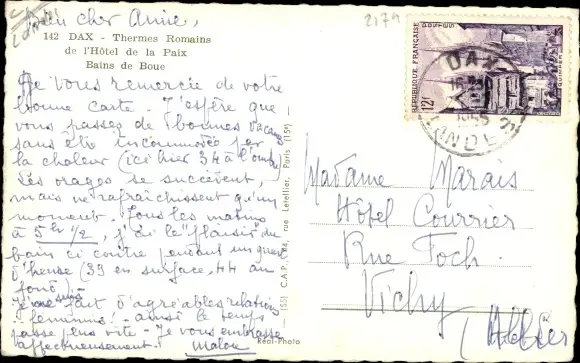 bien cher Amie,
2179
142 DAX - Thermes Romains
de l'Hôtel de la Paix
Bains de Boue
Je vous remercie de votre
bonne carte - J'espère que
vous passes de bonnes vacances
sans être incommodée par
la chaleur (ici hier 34 à l'ombre
Les orages se succèdent,
mais ne rafraîchissent qu'un
moment. Tous les matins
à 5h 1/2, j'ai le "plaisir" du
bain ci contre pendant un quart
d'heure (39 en surface, 44 au
fond)
Je me suis fait d'agréables relations
féminins! - ainsi le temps
passe plus vite - Je vous embrasse
affectueusement. Malou
Réal-Photo
(55) C.A.P. rue Letellier, Paris (15e)
REPUBLIQUE FRANÇAISE
POSTES
12F
QUIMPER
DAX
LANDES
Madame Marais
Hôtel Courrier
Rue Foch
Vichy
(Allier